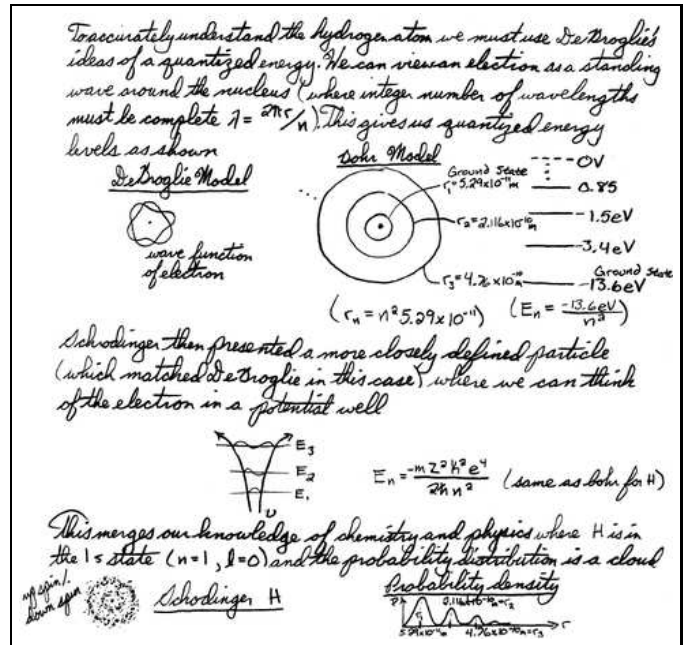 To accurately understand the hydrogen atom we must use DeBroglie's
ideas of a quantized energy. We can view an election as a standing
wave around the nucleus (where integer number of wavelengths
must be complete λ = 2πr/n). This gives us quantized energy
levels as shown
DeBroglie Model
wave function
of electron
Bohr Model
Ground State
r₁=5.29x10⁻¹¹m
r₂=2.116x10⁻¹⁰m
r₃=4.76x10⁻¹⁰m
(rₙ = n²5.29x10⁻¹¹)
0V
0.85
-1.5eV
-3.4eV
Ground State
-13.6eV
(Eₙ = -13.6eV/n²)
Schrodinger then presented a more closely defined particle
(which matched DeBroglie in this case) where we can think
of the electron in a potential well
E₃
E₂
E₁
Eₙ = -mZ²k²e⁴/2ħn² (same as bohr for H)
This merges our knowledge of chemistry and physics where H is in
the 1s state (n=1, l=0) and the probability distribution is a cloud
up spin/
down spin
Schodinger H
Probability density
P
r₁
2.116x10⁻¹⁰m=r₂
r
5.29x10⁻¹¹m
4.76x10⁻¹⁰m=r₃